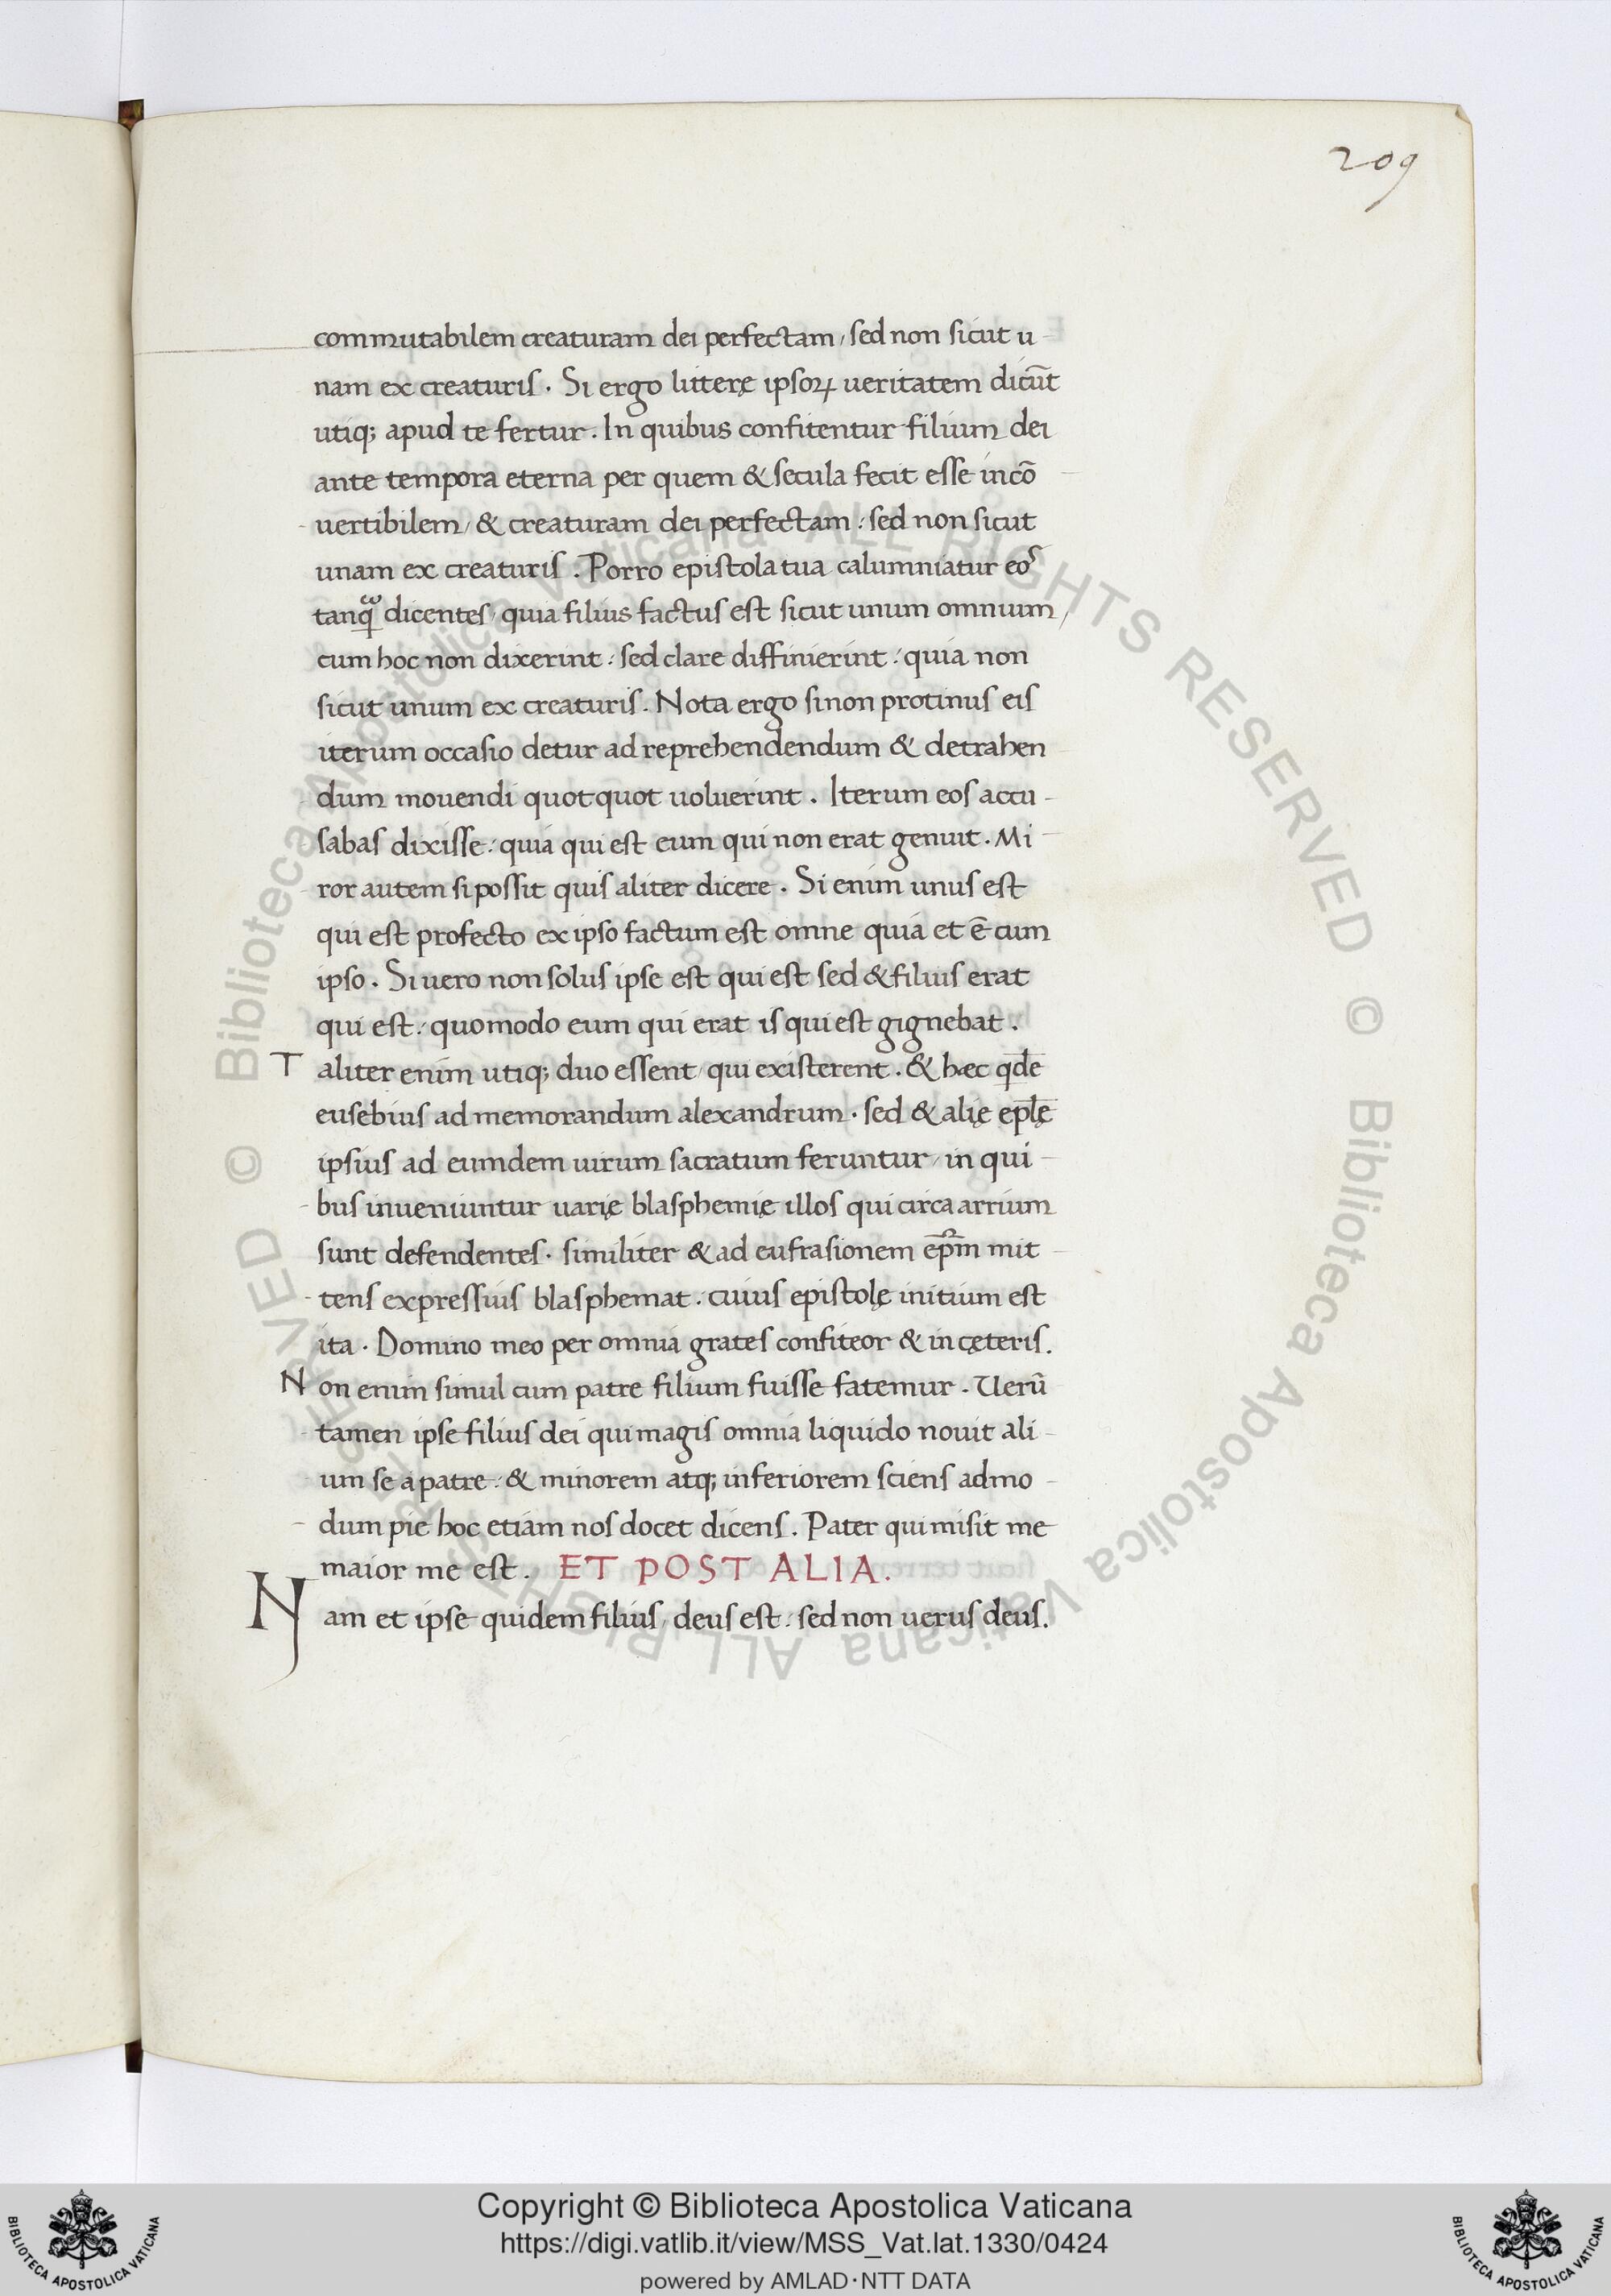 209
commutabilem creaturam dei perfectam, sed non sicut u-
nam ex creaturis. Si ergo litterę ipsoꝝ ueritatem dicūt
utiq; apud te fertur. In quibus confitentur filium dei
ante tempora eterna per quem & secula fecit esse incō
uertibilem, & creaturam dei perfectam: sed non sicut
unam ex creaturis: Porro epistola tua calumniatur eos
tanqͣ dicentes, quia filius factus est sicut unum omnium,
cum hoc non dixerint: sed clare diffinierint: quia non
sicut unum ex creaturis. Nota ergo si non protinus eis
iterum occasio detur ad reprehendendum & detrahen
dum mouendi quotquot uoluerint. Iterum eos accu-
sabas dixisse: quia qui est eum qui non erat genuit. Mi
ror autem si possit quis aliter dicere. Si enim unus est
qui est profecto ex ipso factum est omne quia et ē cum
ipso. Si uero non solus ipse est qui est sed & filius erat
qui est: quomodo eum qui erat is qui est gignebat.
Taliter enim utiq; duo essent, qui existerent. & hæc qdē
eusebius ad memorandum alexandrum. sed & alię epl̄ę
ipsius ad eumdem uirum sacratum feruntur, in qui-
bus inueniuntur uarię blasphemię illos qui circa arrium
sunt defendentes. similiter & ad eufrasionem ep̄m mit
tens expressius blasphemat: cuius epistolę initium est
ita. Domino meo per omnia grates confiteor & in cęteris.
Non enim simul cum patre filium fuisse fatemur. Uerū
tamen ipse filius dei qui magis omnia liquido nouit ali-
um se a patre: & minorem atq; inferiorem sciens admo-
dum pie hoc etiam nos docet dicens. Pater qui misit me
maior me est. ET POST ALIA.
Nam et ipse quidem filius, deus est: sed non uerus deus.
Copyright © Biblioteca Apostolica Vaticana
https://digi.vatlib.it/view/MSS_Vat.lat.1330/0424
powered by AMLAD·NTT DATA